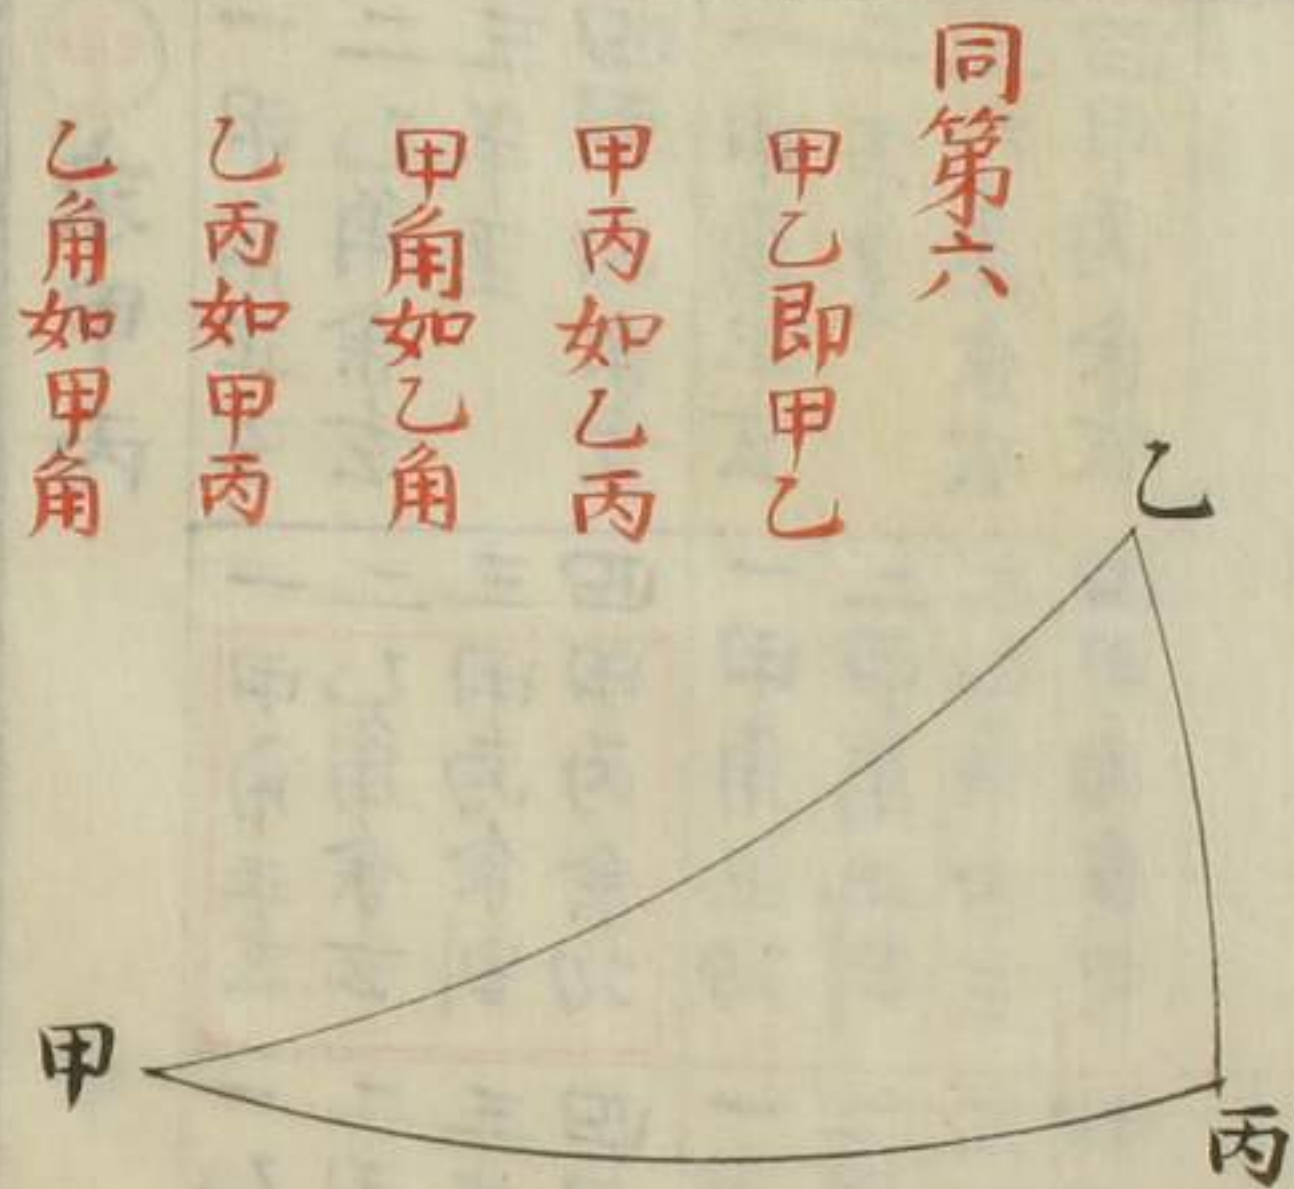 同第六
甲乙即甲乙
甲丙如乙丙
甲角如乙角
乙丙如甲丙
乙角如甲角
乙
甲
丙